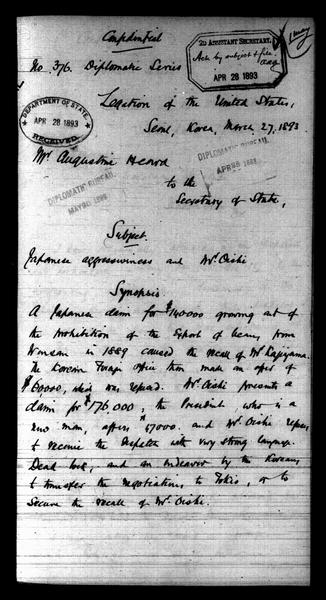 Confidential
2D ASSISTANT SECRETARY.
Acts by subject & file
APR 28 1893
No. 376. Diplomatic Series
DEPARTMENT OF STATE,
APR 28 1893
RECEIVED.
Legation of the United States,
Seoul, Korea, March 27, 1893.
Mr. Augustine Heard
DIPLOMATIC BUREAU.
DIPLOMATIC BUREAU.
to the
Secretary of State,
Subject.
Japanese aggressiveness and Mr. Oishi
Synopsis.
A Japanese claim for $140000 growing out of
the prohibition of the Export of beans, from
Wonsan in 1889 caused the recall of Mr. Kajiyama.
The Korean Foreign Office then made an offer of
$60000, which was refused. Mr. Oishi presents a
claim for $176,000; the President, who is a
new man, offers 47000. and Mr. Oishi refuses
to receive the Despatch with very strong language.
Dead lock, and an endeavor by the Koreans,
to transfer the negotiations, to Tokio, or to
Secure the recall of Mr. Oishi.